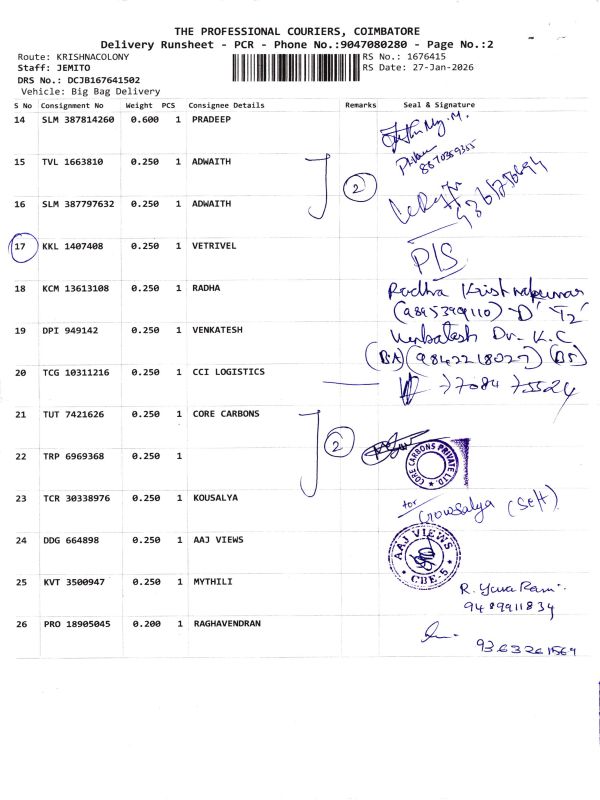 THE PROFESSIONAL COURIERS, COIMBATORE
Delivery Runsheet - PCR - Phone No.:9047080280 - Page No.:2
Route: KRISHNACOLONY
RS No.: 1676415
Staff: JEMITO
RS Date: 27-Jan-2026
DRS No.: DCJB167641502
Vehicle: Big Bag Delivery
S No Consignment No Weight PCS Consignee Details Remarks Seal & Signature
14 SLM 387814260 0.600 1 PRADEEP
8870369355
15 TVL 1663810 0.250 1 ADWAITH
2
16 SLM 387797632 0.250 1 ADWAITH
17 KKL 1407408 0.250 1 VETRIVEL
P/S
18 KCM 13613108 0.250 1 RADHA Radha Krishnakumar
(9895399110) 'D' 'T2'
19 DPI 949142 0.250 1 VENKATESH Venkatesh Dr. K.C
(9842218027)
20 TCG 10311216 0.250 1 CCI LOGISTICS
77084 75524
21 TUT 7421626 0.250 1 CORE CARBONS
2
22 TRP 6969368 0.250 1 CORE CARBONS PRIVATE LTD.
23 TCR 30338976 0.250 1 KOUSALYA for Gowsalya (Self)
24 DDG 664898 0.250 1 AAJ VIEWS AAJ VIEWS CBE-5
25 KVT 3500947 0.250 1 MYTHILI R. Yuva Rani
9489911834
26 PRO 18905045 0.200 1 RAGHAVENDRAN
9363261569